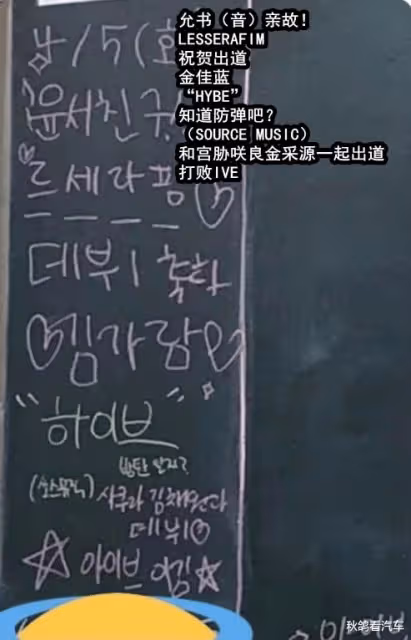 4/5(화
允书（音）亲故！
LESSERAFIM
祝贺出道
金佳蓝
“HYBE”
知道防弹吧？
（SOURCE MUSIC）
和宫胁咲良金采源一起出道
打败IVE
윤서친구
르세라핌♡
데뷔 축하
♡김가람♡
"하이브"
방탄 알지?
(쏘스뮤직) 사쿠라 김채원과
데뷔♡
☆아이브 이김☆
秋鸽看汽车